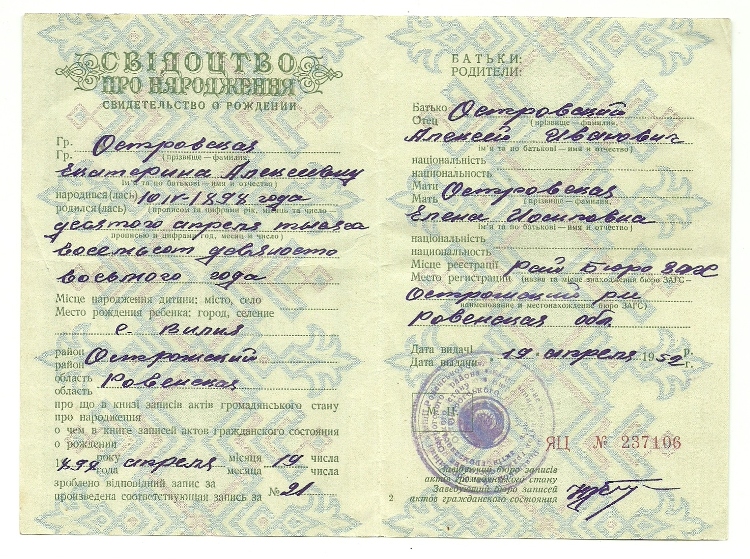 СВІДОЦТВО
ПРО НАРОДЖЕННЯ
СВИДЕТЕЛЬСТВО О РОЖДЕНИИ
Гр. Островская
Гр. (прізвище — фамилия)
Екатерина Алексеевну
ім'я та по батькові — имя и отчество)
народився(лась) 10 IV-1898 года
родился(лась) (прописом та цифрами рік, місяць та число
десятого апреля тысяча
прописью и цифрами год, месяц и число)
восемьсот девяносто
восьмого года
Місце народження дитини: місто, село
Место рождения ребенка: город, селение
с. Вилия
район Острожский
район
область Ровенская
область
про що в книзі записів актів громадянського стану
про народження
о чем в книге записей актов гражданского состояния
о рождении
1898 року апреля місяця 19 числа
года месяца числа
зроблено відповідний запис за
произведена соответствующая запись за № 21
БАТЬКИ:
РОДИТЕЛИ:
Батько Островский
Отец (прізвище — фамилия)
Алексей Иванович
(ім'я та по батькові — имя и отчество)
національність
национальность
Мати Островская
Мать (прізвище — фамилия)
Елена Иосиповна
ім'я та по батькові — имя и отчество)
національність
национальность
Місце реєстрації Рай Бюро ЗАГС
Место регистрации (назва та місце знаходження бюро ЗАГС —
Острожский р-н
наименование и местонахождение бюро ЗАГС)
Ровенская обл.
Дата видачі 19 апреля 1952 р.
Дата выдачи г.
М. П.
ЯЦ № 237106
Завідуючий бюро записів
актів громадянського стану
Заведующий бюро записей
актов гражданского состояния
2